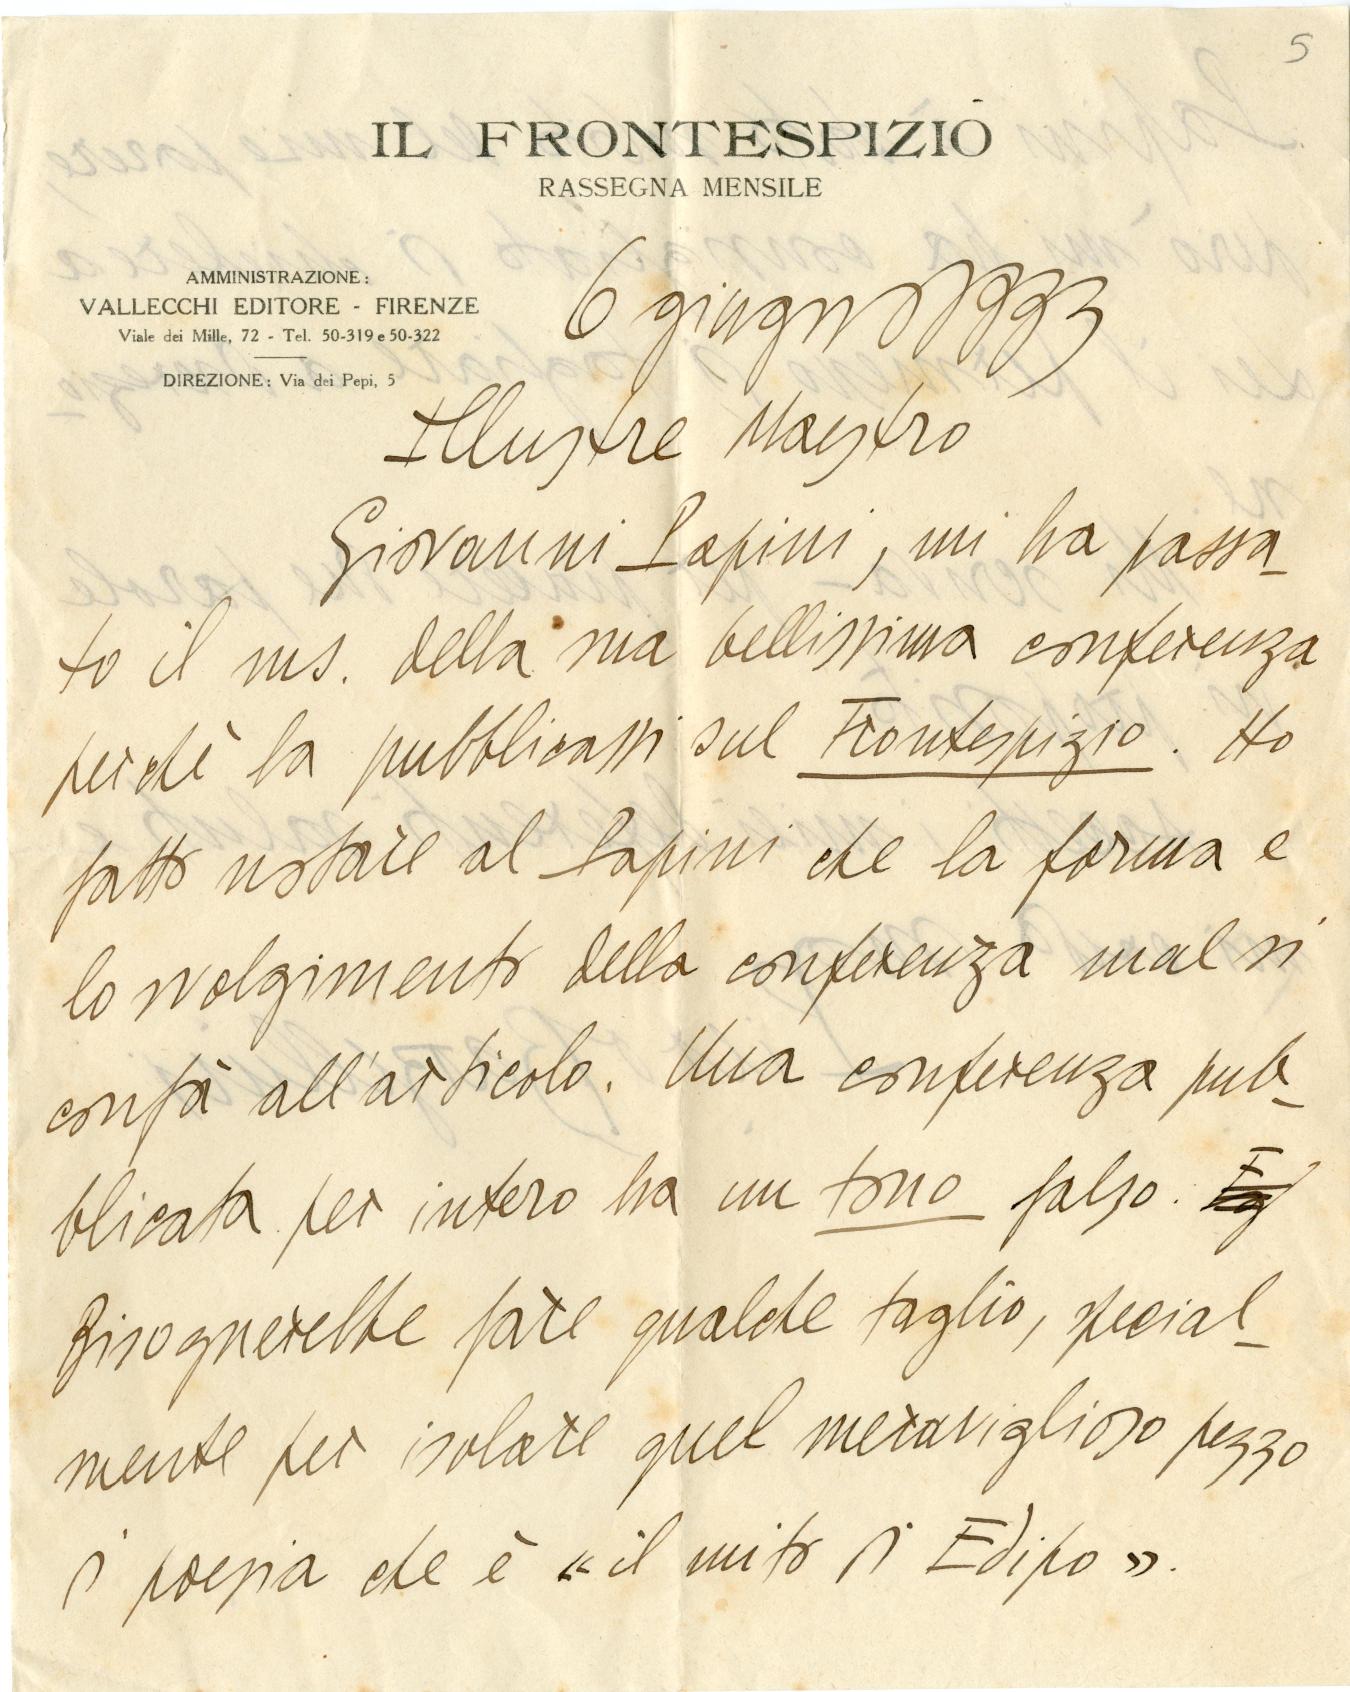 5
IL FRONTESPIZIO
RASSEGNA MENSILE
AMMINISTRAZIONE:
VALLECCHI EDITORE - FIRENZE
Viale dei Mille, 72 - Tel. 50-319 e 50-322
DIREZIONE: Via dei Pepi, 5
6 giugno 1933
Illustre Maestro
Giovanni Papini, mi ha passa-
to il ms. della sua bellissima conferenza
perchè la pubblicassi sul Frontespizio. Ho
fatto notare al Papini che la forma e
lo svolgimento della conferenza mal si
confà all'articolo. Una conferenza pub-
blicata per intero ha un tono falso.
Bisognerebbe fare qualche taglio, special-
mente per isolare quel meraviglioso pezzo
di poesia che è « il mito di Edipo ».